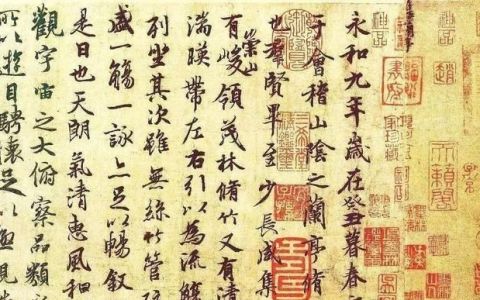 永和九年歲在癸丑暮春
于會稽山陰之蘭亭脩
也羣賢畢至少長咸集
有崇山峻領茂林脩竹又有清
湍暎帶左右引以為流
列坐其次雖無絲竹管
盛一觴一詠亦足以暢敘
是日也天朗氣清惠風和
觀宇宙之大俯察品類
所以遊目騁懷足以極視